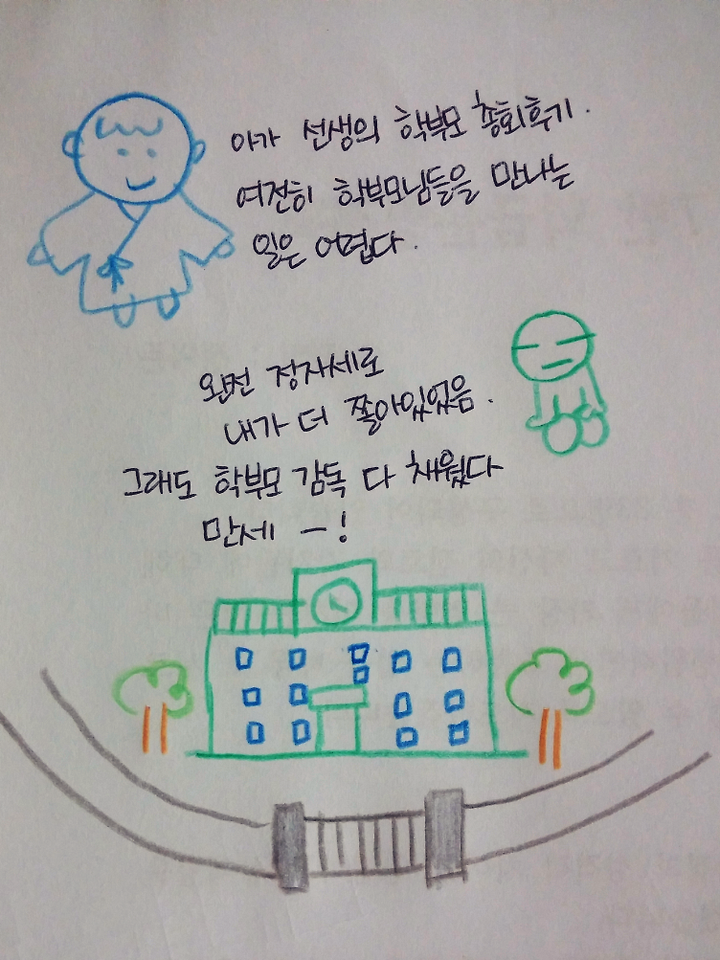 아가 선생의 학부모 총회후기.
여전히 학부모님들을 만나는
일은 어렵다.
완전 정자세로
내가 더 쫄아있었음.
그래도 학부모 감독 다 채웠다
만세 -!